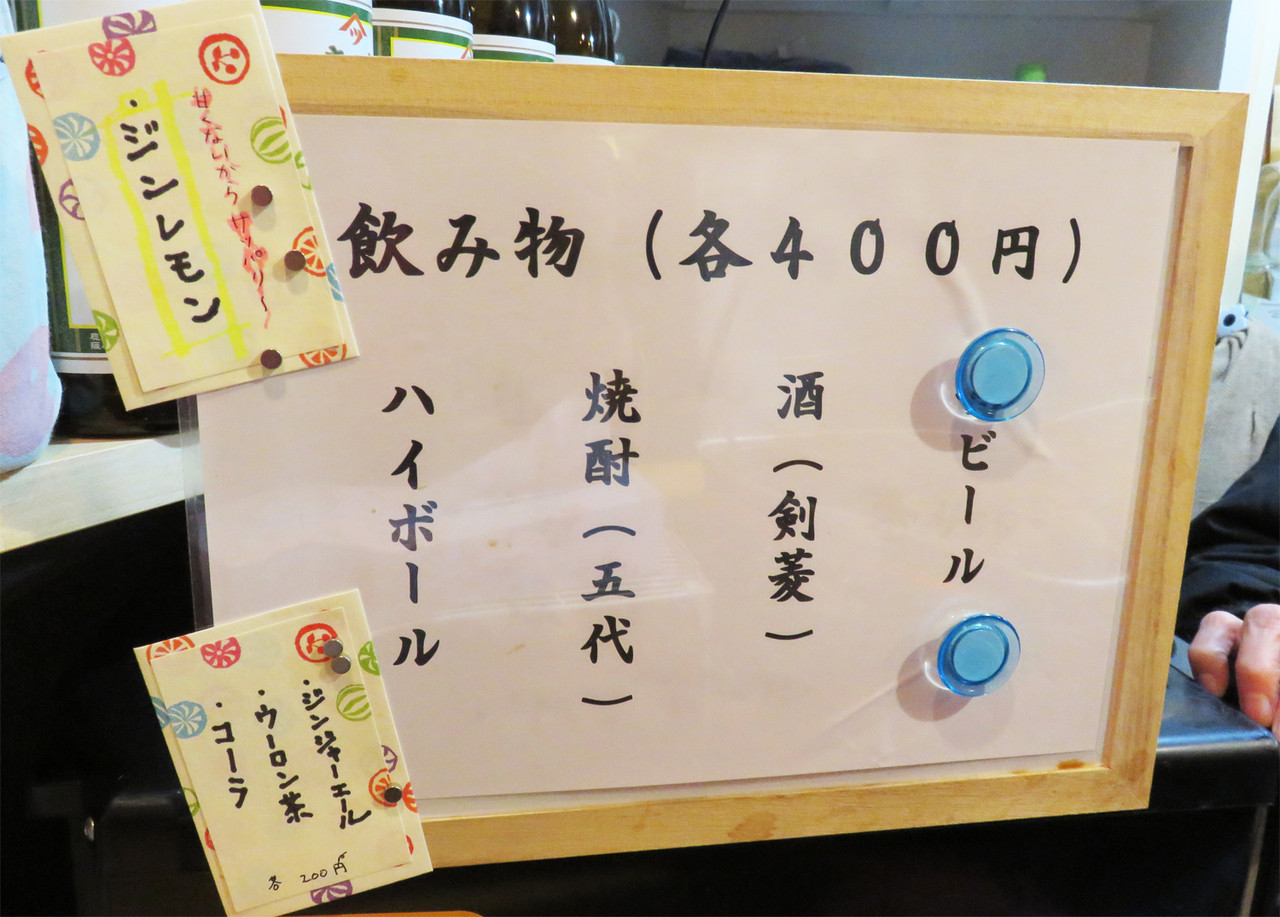 飲み物（各４００円）
ビール
酒（剣菱）
焼酎（五代）
ハイボール
甘くないからサッパリ〜
・ジンレモン
・ジンジャーエール
・ウーロン茶
・コーラ
各 200円